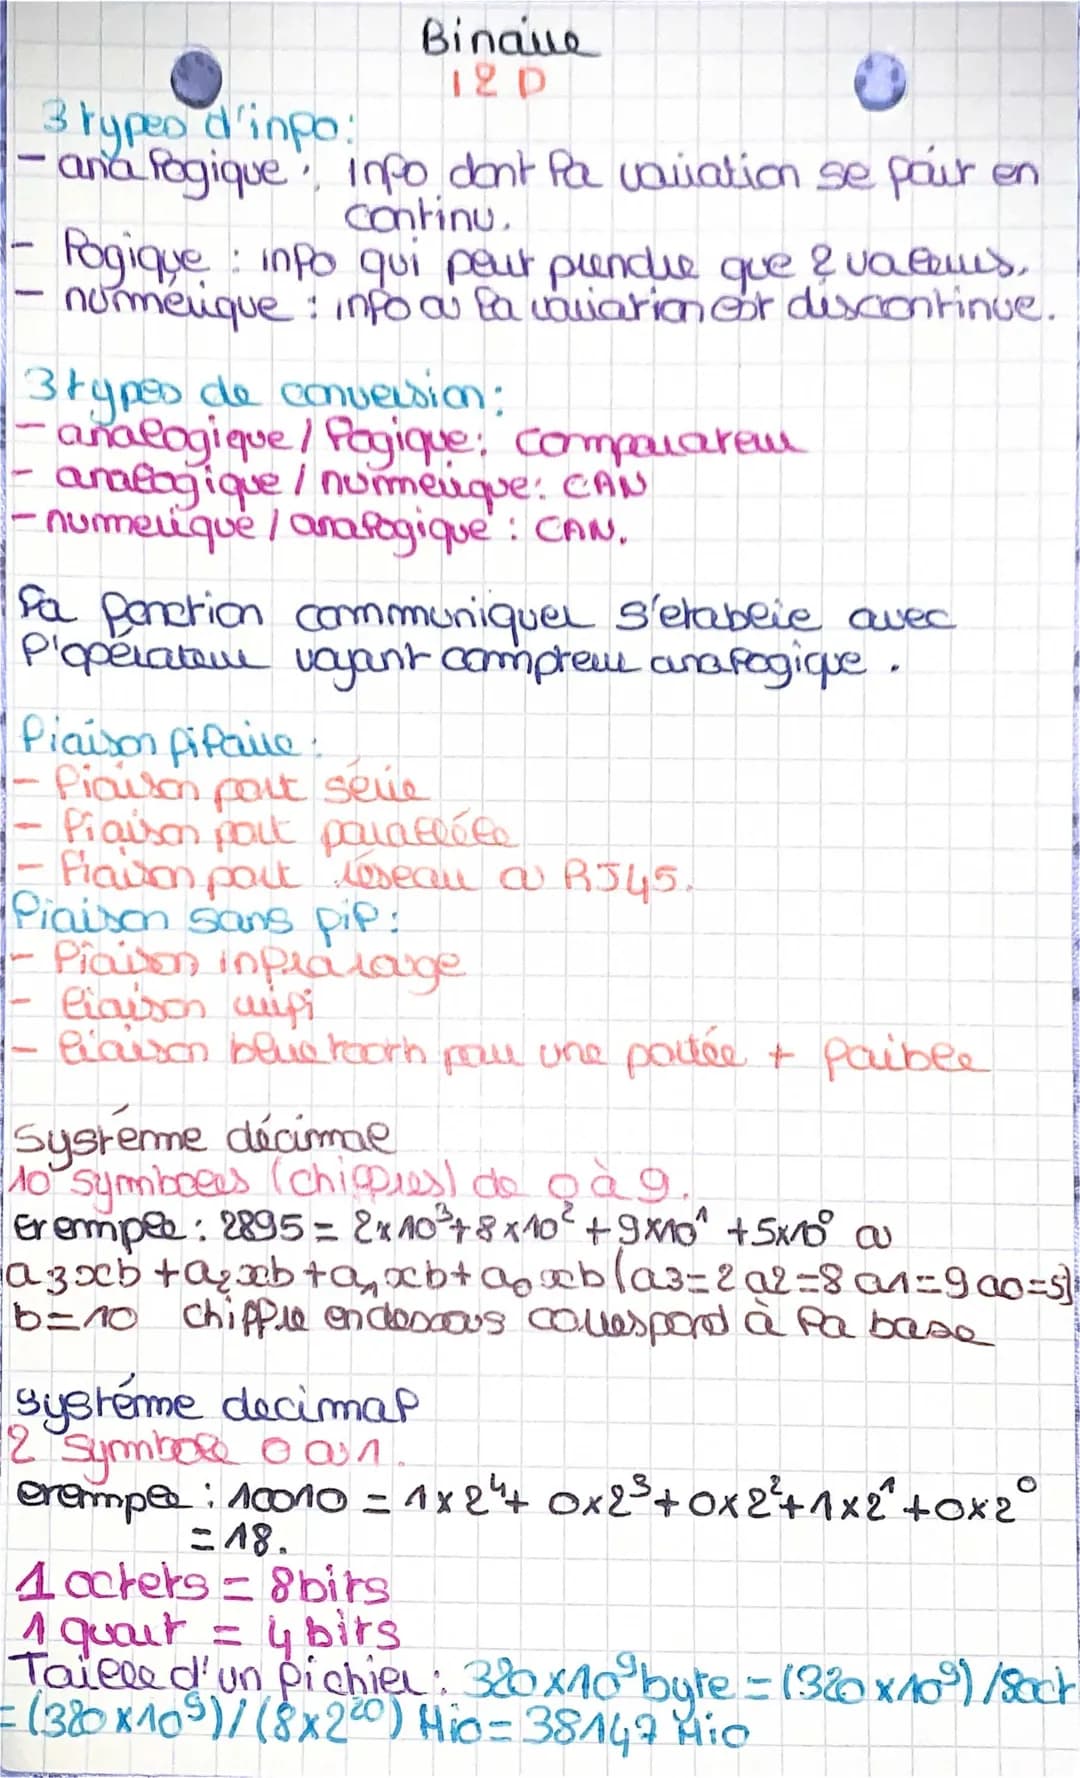 Binaire
I2D
3 types d'info:
- analogique : info dont la variation se fait en
continu.
- logique : info qui peut prendre que 2 valeurs.
- numérique : info où la variation est discontinue.
3 types de conversion:
- analogique / logique: comparateur
- analogique / numérique: CAN
- numerique / analogique : CAN.
la fonction communiquer s'etablie avec
l'opérateur voyant compteur analogique.
liaison filaire :
- liaison port série
- liaison port parallèle
- liaison port réseau ou RJ45.
liaison sans fil :
- liaison infrarange
- liaison wifi
- liaison bluetooth pour une portée + faible
Systéme décimal
10 symboles (chiffres) de 0 à 9.
Exemple : 2895 = 2x10³+8x10² +9x10¹ +5x10⁰ ou
a3xb +a₂xb+a₁xb+a₀xb (a3=2 a2=8 a1=9 a0=5)
b=10 chiffre endessous correspond à la base
systéme decimal
2 symbole 0 ou 1.
exemple : 10010 = 1x2⁴+ 0x2³+0x2²+1x2¹+0x2⁰
= 18.
1 octets = 8bits
1 quart = 4 bits
Taille d'un fichier : 320x10⁹byte = (320x10⁹)/8oct
= (320x10⁹)/(8x2²⁰) Mio = 38147 Mio